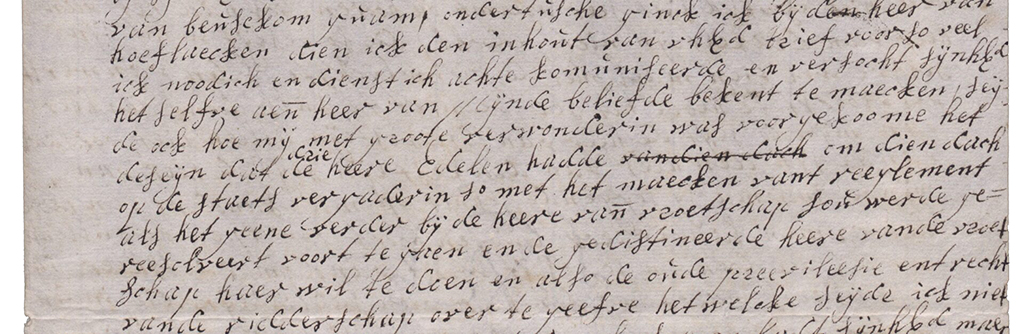 van beusekom quam, ondertusche ginck ick bij den heer van
hoeflaecken dien ick den inhout van vhEd brief voor so veel
ick noodich en dienstich achte komuniseerde en versocht sijnhEd
het selfve aen heer van Mijnde beliefde bekent te maecken, sey-
de ock hoe mij met groote verwonderin was voorgekoome het
deseyn dat de drie heere Edelen hadde vandien dach om dien dach
op de staets vergaderin so met het maecken vant reeglement
als het geene verder bij de heere van vroetschap sou werde ge=
reesolveert voort te gaen en de gedistineerde heere vande vroet
schap haer wil te doen en also de oude preevileesie ent recht
vande ridderschap over te geefve het welcke seyde ick niet